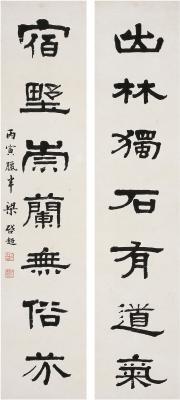 出林獨石有道氣
宿野崇蘭無俗亦
丙寅臘半 梁啓超